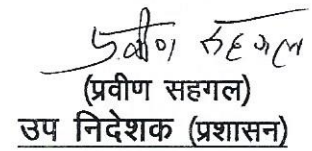 प्रवीण सहगल
(प्रवीण सहगल)
उप निदेशक (प्रशासन)